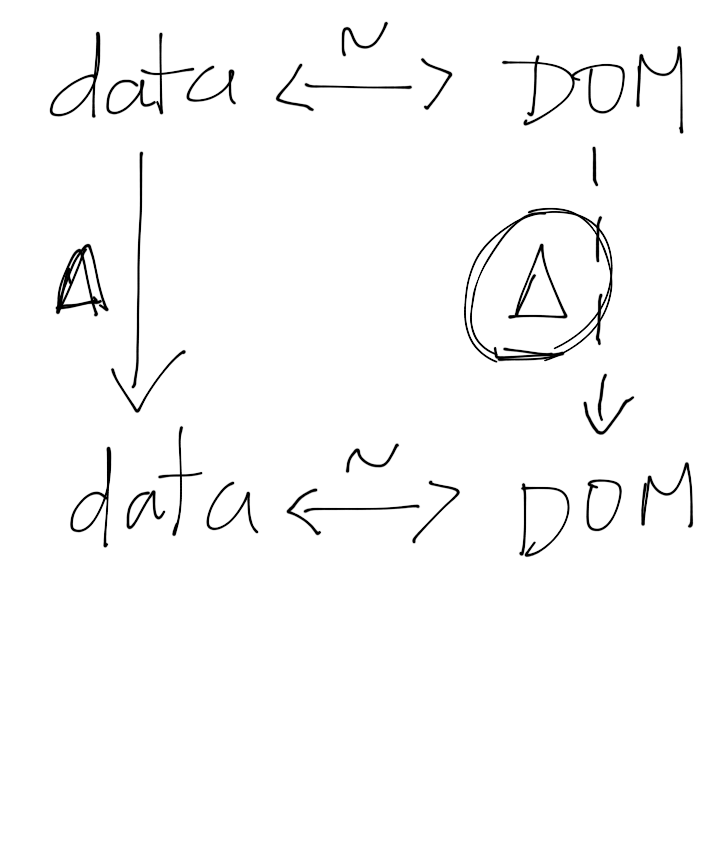 ~
data ⟷ DOM
Δ Δ
~
data ⟷ DOM